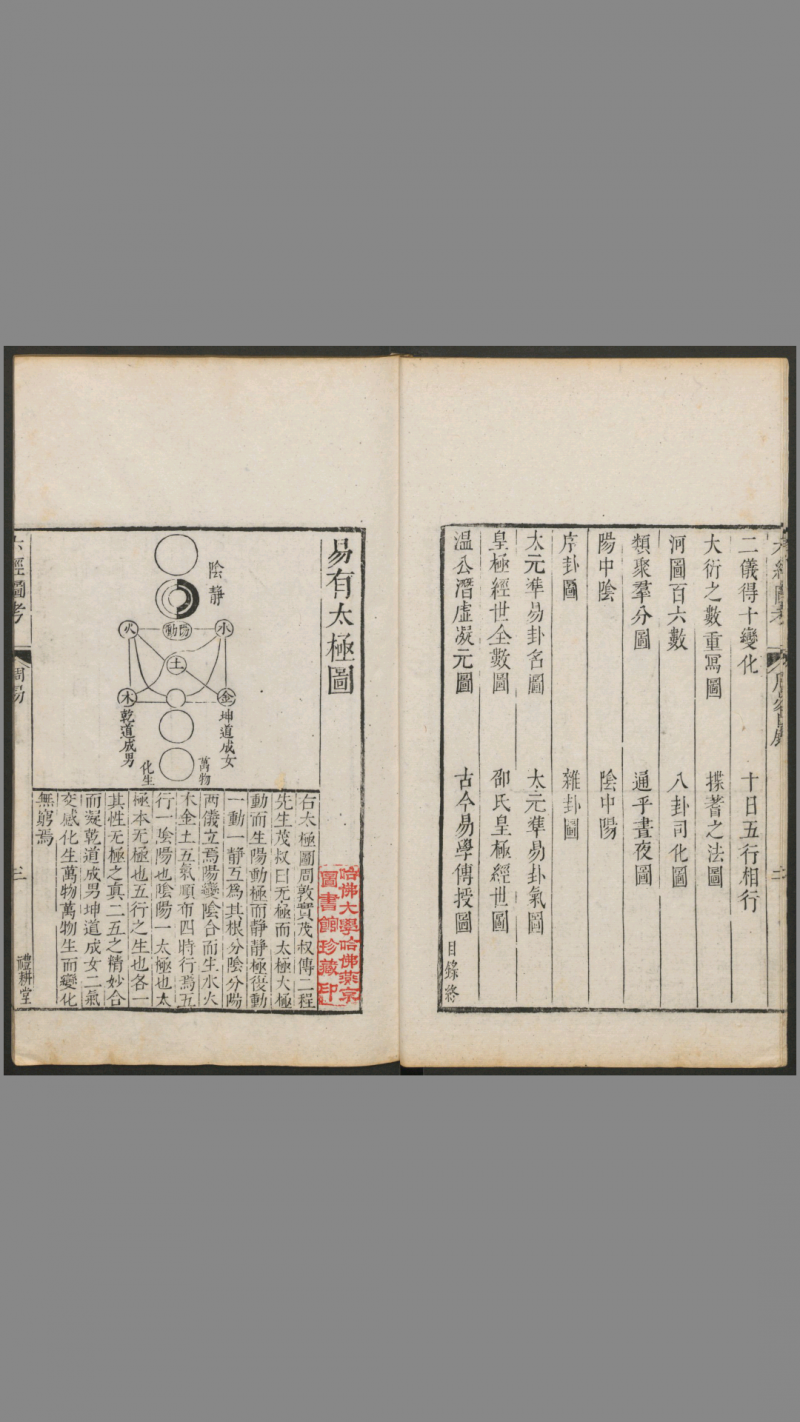 二儀得十變化
十日五行相行
大衍之數重寫圖
揲蓍之法圖
河圖百六數
八卦司化圖
類聚羣分圖
通乎晝夜圖
陽中陰
陰中陽
序卦圖
雜卦圖
太元準易卦名圖
太元準易卦氣圖
皇極經世全數圖
邵氏皇極經世圖
温公潛虛凝元圖
古今易學傳授圖
目錄終
易有太極圖
陰靜
火
陽動
水
土
木
金
坤道成女
乾道成男
萬物
化生
右太極圖周敦實茂叔傳二程
先生茂叔曰无極而太極大極
動而生陽動極而靜靜極復動
一動一靜互爲其根分陰分陽
兩儀立焉陽變陰合而生水火
木金土五氣順布四時行焉五
行一陰陽也陰陽一太極也太
極本无極也五行之生也各一
其性无極之真二五之精妙合
而凝乾道成男坤道成女二氣
交感化生萬物萬物生而變化
無窮焉
哈佛大學哈佛燕京
圖書館珍藏印
六經圖考
周易
三
禮耕堂